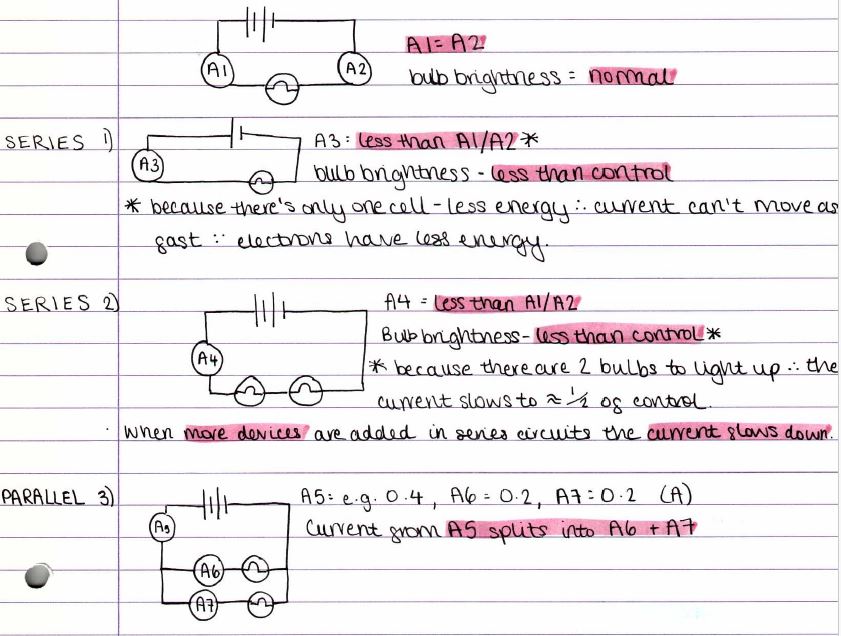 A1 = A2
A1 A2
bulb brightness = normal
SERIES 1) A3: less than A1/A2 *
A3
bulb brightness - less than control
* because there's only one cell - less energy ∴ current can't move as
fast ∵ electrons have less energy.
SERIES 2) A4 = less than A1/A2
Bulb brightness - less than control *
A4
* because there are 2 bulbs to light up ∴ the
current slows to ≈ 1/2 of control.
When more devices are added in series circuits the current slows down.
PARALLEL 3) A5: e.g. 0.4, A6 = 0.2, A7 = 0.2 (A)
A5
Current from A5 splits into A6 + A7
A6
A7